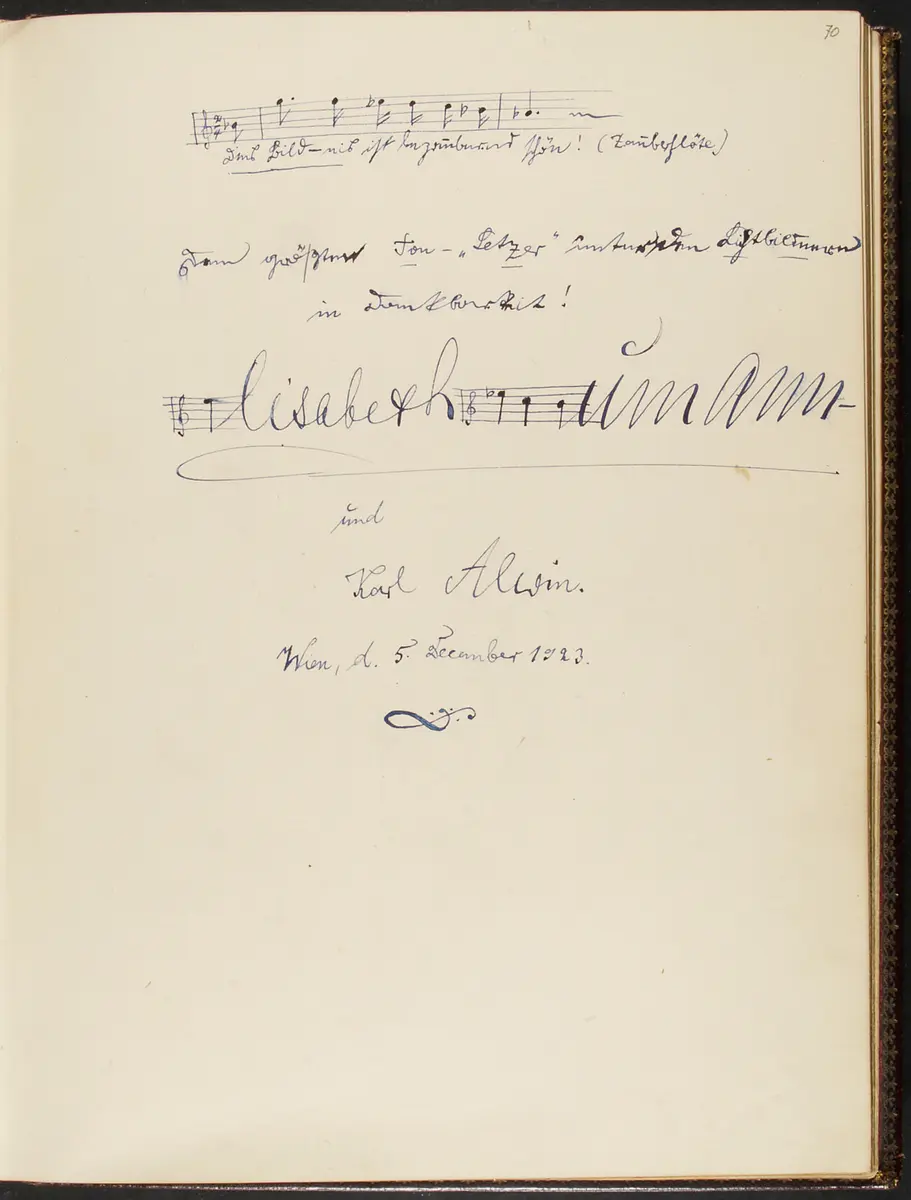 70
Dies Bild-nis ist bezaubernd schön! (Zauberflöte)
Dem größten Ton-„Setzer" unter den Lichtbildnern
in Dankbarkeit!
lisabeth umann
und
Karl Alwin.
Wien, d. 5. December 1923.